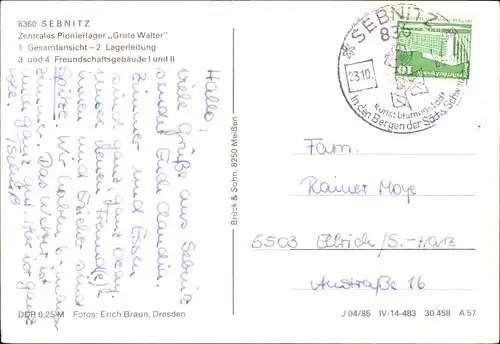 8360 SEBNITZ
Zentrales Pionierlager „Grete Walter"
1 Gesamtansicht – 2 Lagerleitung
3 und 4 Freundschaftsgebäude I und II
Hallo,
viele Grüße aus Sebnitz
sendet Euch Claudia.
Zimmer und Essen
sind ganz, ganz Okay.
unser
und Erzieher sind
Spitze. Wir haben 6-mann
Zimmer. Das Wetter ist
ganz gut. Hier ist ganz
Tschüß
DDR 0,25 M Fotos: Erich Braun, Dresden
Brück & Sohn, 8250 Meißen
SEBNITZ
836
23.10.
Kunstblumenstadt
in den Bergen der Sächs. Schweiz
Fam.
Rainer Moye
5503 Ilbrich/S.-Harz
Austraße 16
J 04/85 IV-14-483 30 458 A 57